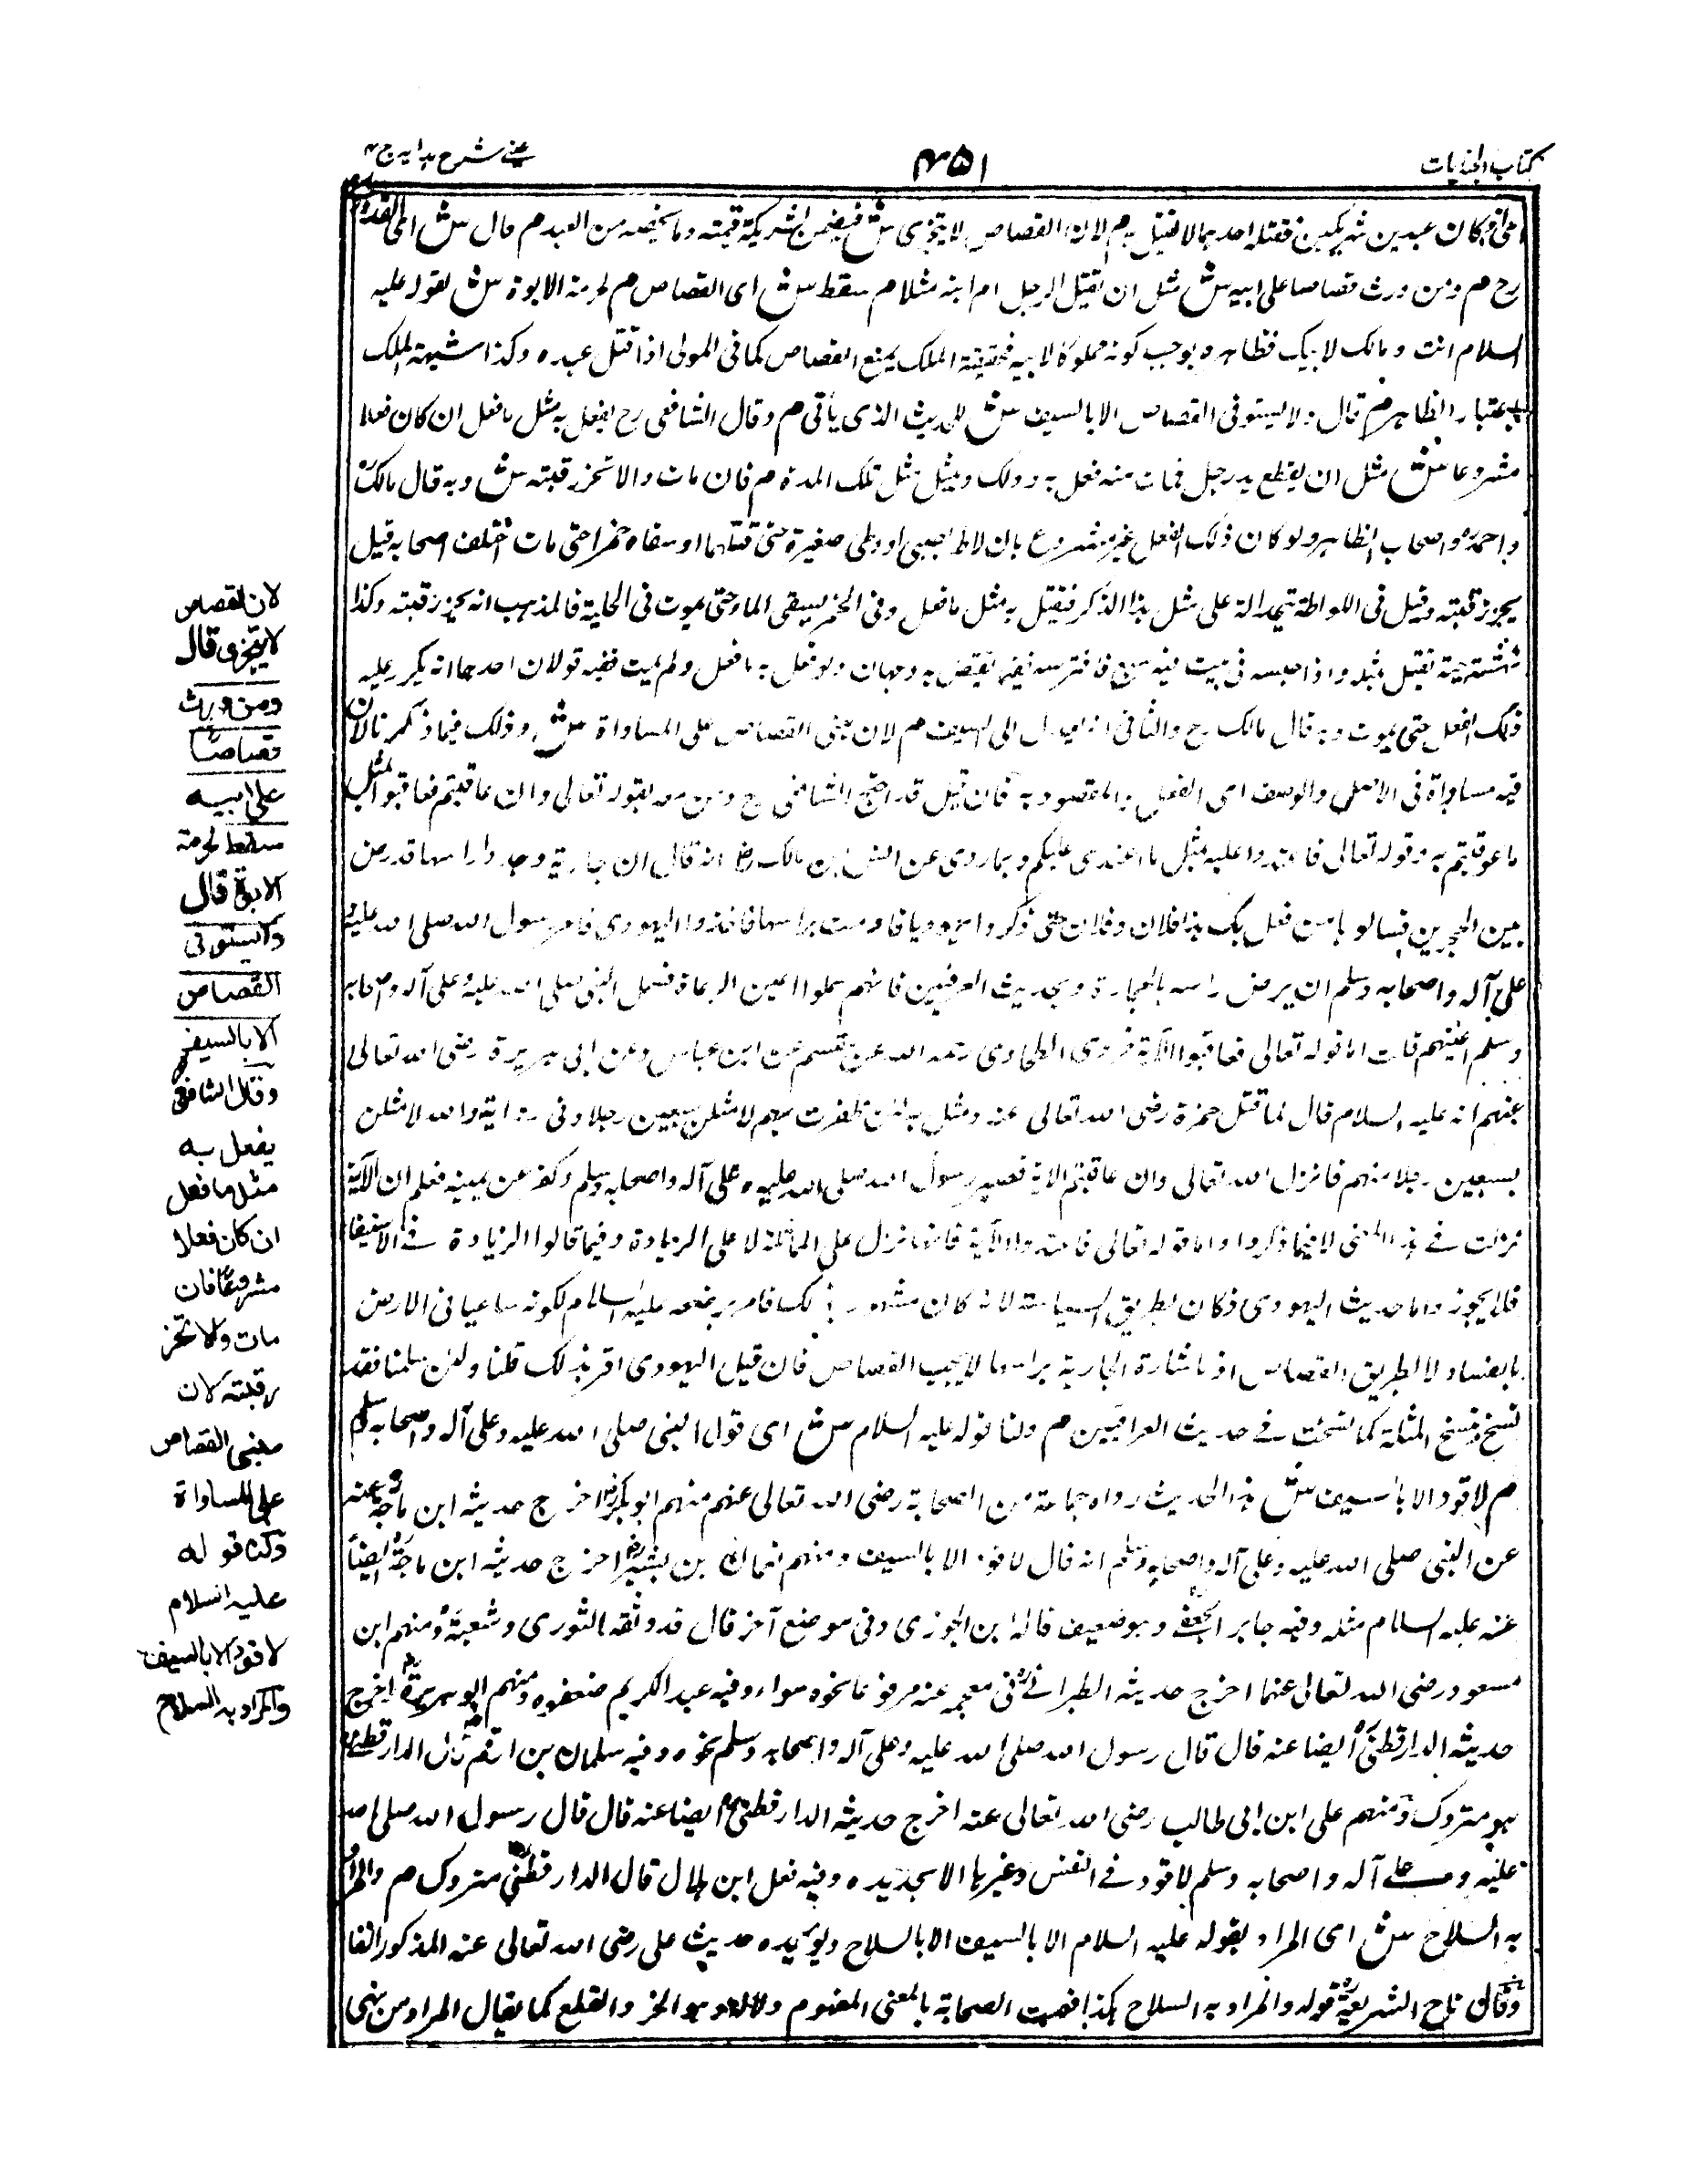 كتاب الجنايات
٤٥١
عيني شرح هدايه ج ٤
كان عبدين شريكين فقتله احدهما لا يقتل به م لان القصاص لا يتجزى ش فيضمن لشريكه قيمته وما يخصه من العبد م قال ش اى القدورى
رح م ومن ورث قصاصا على ابيه ش مثل ان يقتل الرجل ام ابنه مثلا م سقط ش اى القصاص م لحرمة الابوة ش لقوله عليه
السلام انت ومالك لابيك فظاهره يوجب كونه مملوكا لابيه فحقيقة الملك يمنع القصاص كما فى المولى اذا قتل عبده وكذا شبهة الملك
باعتبار الظاهر م قال ولا يستوفى القصاص الا بالسيف ش للحديث الذى يأتى م وقال الشافعى رح يفعل به مثل ما فعل ان كان فعلا
مشروعا ش مثل ان يقطع يد رجل فمات منه فعل به ذلك ويمهل مثل تلك المدة م فان مات والا تحز رقبته ش وبه قال مالك
واحمد واصحاب الظاهر ولو كان ذلك الفعل غير مشروع بان لاط بصبى او وطى صغيرة حتى قتلها او سقاه خمرا حتى مات اختلف اصحابه قيل
يحز رقبته وقيل فى اللواطة يتخذ آلة على مثل هذا الذكر فيقتل به مثل ما فعل وفى الخمر يسقى الماء حتى يموت فى الحلية فالمذهب انه يحز رقبته وكذا
يقتل بمثله واذا حبسه فى بيت فيه سبع فافترسه ففيه وجهان ولو فعل به ما فعل ولم يمت ففيه قولان احدهما انه يكرر عليه
ذلك الفعل حتى يموت وبه قال مالك رح والثانى انه يعدل الى السيف م لان مبنى القصاص على المساواة ش وذلك فيما ذكرنا لان
فيه مساواة فى الاصل والوصف اى الفعل والمقصود به فان قيل قد احتج الشافعى رح ومن معه بقوله تعالى وان عاقبتم فعاقبوا بمثل
ما عوقبتم به وقوله تعالى فاعتدوا عليه بمثل ما اعتدى عليكم وبما روى عن انس بن مالك رض انه قال ان جارية وجد راسها قد رض
بين الحجرين فسالوها من فعل بك هذا فلان وفلان حتى ذكروا يهوديا فاومت براسها فاخذوا اليهودى فامر رسول الله صلى الله عليه و
على آله واصحابه وسلم ان يرض راسه بالحجارة وبحديث العرنيين فانهم سملوا اعين الرعاة فسمل النبى صلى الله عليه وعلى آله واصحابه
وسلم اعينهم قلت اما قوله تعالى فعاقبوا الآية فروى الطحاوى رحمه الله عن مقسم عن ابن عباس وعن ابى هريرة رضى الله تعالى
عنهم انه عليه السلام قال لما قتل حمزة رضى الله تعالى عنه ومثل به لئن ظفرت بهم لامثلن بسبعين رجلا وفى رواية والله لامثلن
بسبعين رجلا منهم فانزل الله تعالى وان عاقبتم الآية فصبر رسول الله صلى الله عليه وعلى آله واصحابه وسلم وكفر عن يمينه فعلم ان الآية
نزلت فى هذا المعنى لا فيما ذكروا واما قوله تعالى فاعتدوا الآية فانها نزل على المماثلة لا على الزيادة وفيما قالوا الزيادة فى الاستيفاء
فلا يجوز واما حديث اليهودى فكان بطريق السياسة لانه كان مشهورا بذلك فامر برضخه عليه السلام لكونه ساعيا فى الارض
بالفساد لا بطريق القصاص اذ باشارة الجارية براسها لا يجب القصاص فان قيل اليهودى اقر بذلك قلنا ولئن سلمنا فقد
نسخ بنسخ المثلة كما نسخت فى حديث العرانيين م ولنا قوله عليه السلام ش اى قول النبى صلى الله عليه وعلى آله واصحابه وسلم
م لا قود الا بالسيف ش هذا الحديث رواه جماعة من الصحابة رضى الله تعالى عنهم منهم ابو بكرة اخرج حديثه ابن ماجة عنه
عن النبى صلى الله عليه وعلى آله واصحابه وسلم انه قال لا قود الا بالسيف ومنهم نعمان بن بشير اخرج حديثه ابن ماجة ايضا
عنه عليه السلام مثله وفيه جابر الجعفى وهو ضعيف قاله ابن الجوزى وفى موضع آخر قال قد وثقه الثورى وشعبة ومنهم ابن
مسعود رضى الله تعالى عنهما اخرج حديثه الطبرانى فى معجمه عنه مرفوعا نحوه سواء وفيه عبد الكريم ضعفوه ومنهم ابو هريرة اخرج
حديثه الدارقطنى ايضا عنه قال قال رسول الله صلى الله عليه وعلى آله واصحابه وسلم نحوه وفيه سلمان بن ارقم قال الدارقطنى
هو متروك ومنهم على ابن ابى طالب رضى الله تعالى عنه اخرج حديثه الدارقطنى ايضا عنه قال قال رسول الله صلى الله
عليه وعلى آله واصحابه وسلم لا قود فى النفس وغيرها الا بحديدة وفيه معلى ابن هلال قال الدارقطنى متروك م والمراد
به السلاح ش اى المراد بقوله عليه السلام الا بالسيف الا بالسلاح ويؤيده حديث على رضى الله تعالى عنه المذكور انفا
وقال تاج الشريعة قوله والمراد به السلاح هكذا فهمت الصحابة بالمعنى المفهوم وهو الحز والقلع كما يقال المراد من نهى
لان القصاص
لا يتجزى قال
ومن ورث
قصاصا
على ابيه
سقط لحرمة
الابوة قال
ولا يستوفى
القصاص
الا بالسيف
وقال الشافعى
يفعل به
مثل ما فعل
ان كان فعلا
مشروعا فان
مات والا تحز
رقبته لان
مبنى القصاص
على المساواة
ولنا قوله
عليه السلام
لا قود الا بالسيف
والمراد به السلاح